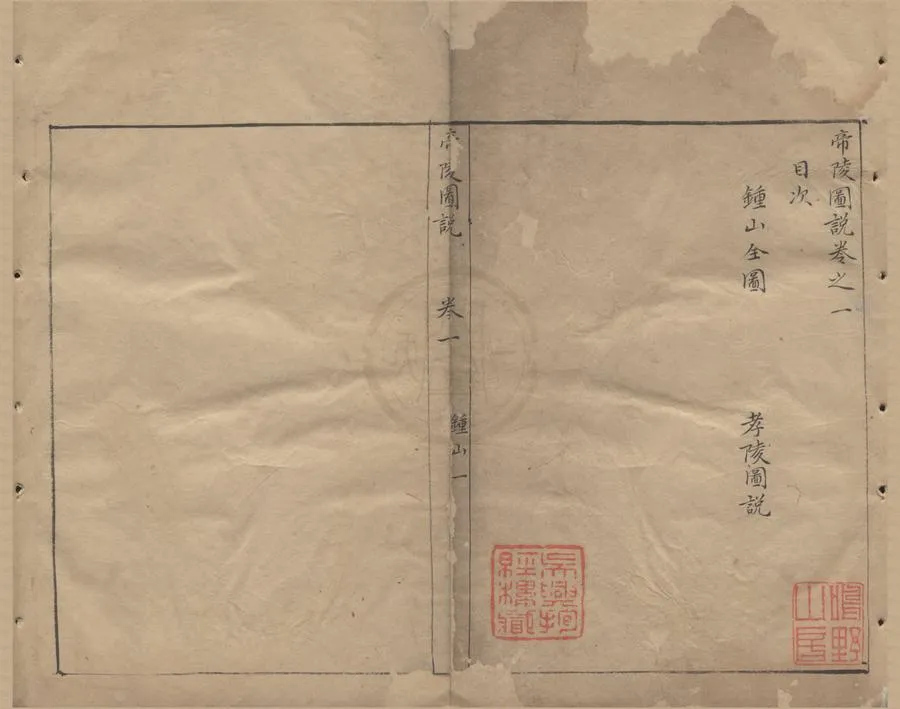 帝陵圖說卷之一
目次
鍾山全圖 孝陵圖說
帝陵圖說 卷一 鍾山一
鳴野山房